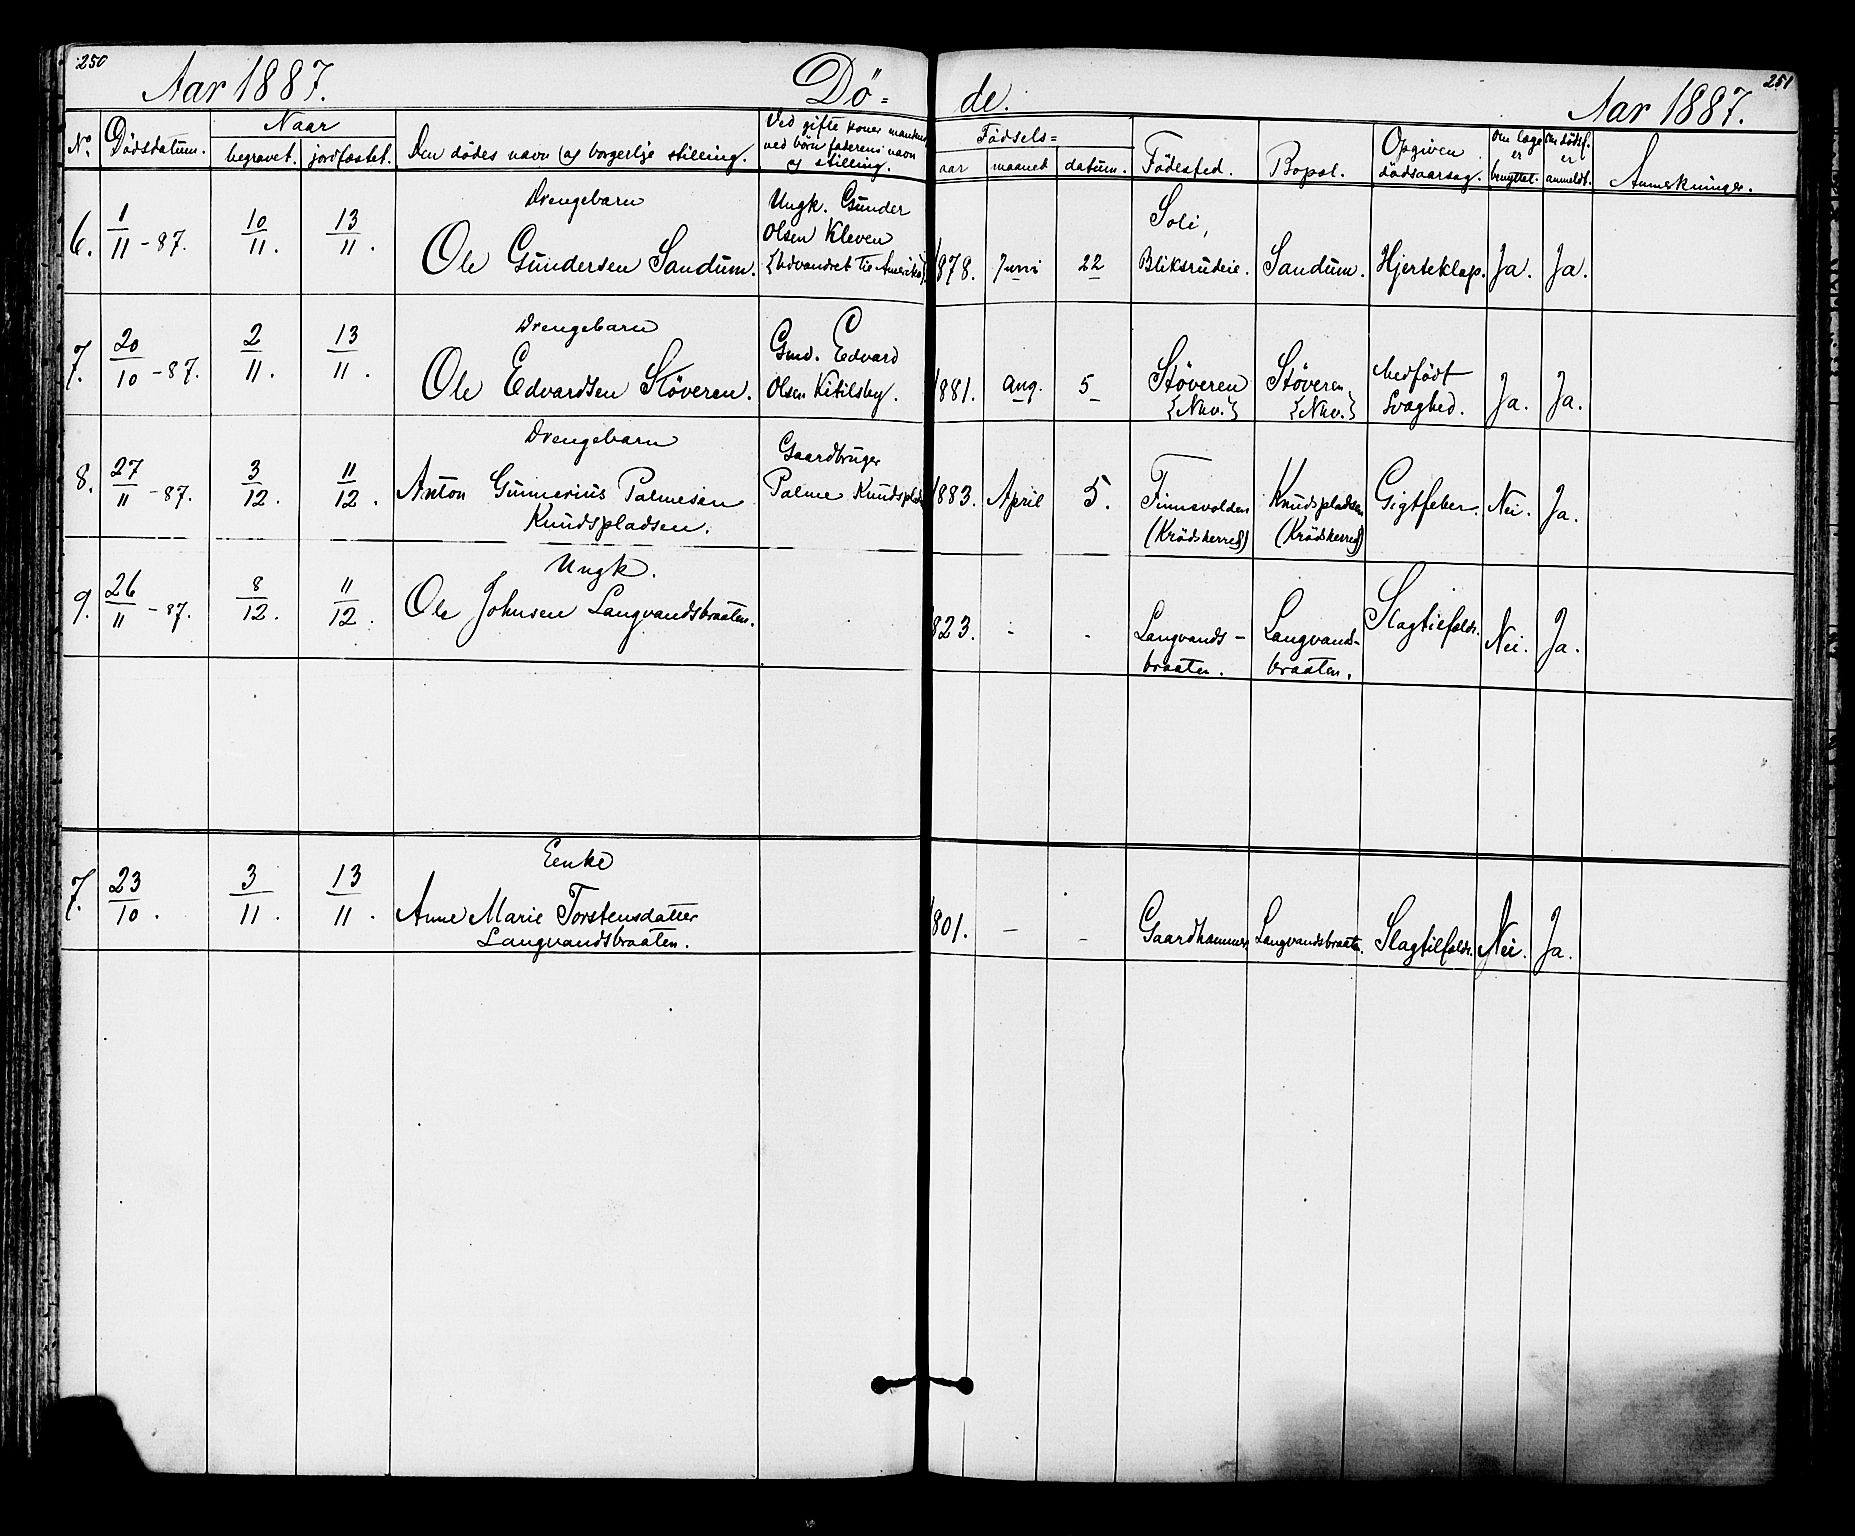 250
Aar 1887.
Dö=
de.
Aar 1887.
251
No.
Dödsdatum.
Naar
begravet.
jordfæstet.
Den dødes navn og borgerlige stilling.
Ved gifte koner mandens
ved börn faderens navn
og stilling.
Födsels=
aar
maaned
datum.
Födested.
Bopæl.
Opgiven
dödsaarsag.
Om læge
er
benyttet.
Om dödsf.
er
anmeldt.
Anmerkninger.
6.
1/11 - 87.
10/11.
13/11.
Drengebarn
Ole Gundersen Sandum.
Ungk. Gunder
Olsen Kleven
{Udvandret til Amerika}
1878.
Juni
22
Soli,
Bliksrudeie.
Sandum.
Hjerteklap.
Ja.
Ja.
7.
20/10 - 87.
2/11.
13/11.
Drengebarn
Ole Edvardsen Stöveren.
Gmd. Edvard
Olsen Kitilsby.
1881.
Aug.
5
Stöveren
{Nav.}
Stöveren
{Nav.}
Medfödt
Svaghed.
Ja.
Ja.
8.
27/11 - 87.
3/12.
11/12.
Drengebarn
Anton Gunnerius Palmesen
Knudspladsen.
Gaardbruger
Palme Knudsplads
1883.
April
5.
Finnevolden
(Krödsherred)
Knudspladsen
(Krödsherred)
Gigtfeber.
Nei.
Ja.
9.
26/11 - 87.
8/12.
11/12.
Ungk.
Ole Johnsen Langvandsbraaten.
1823.
-
-
Langvands-
braaten.
Langvands-
braaten.
Slagtilfælde.
Nei.
Ja.
7.
23/10.
3/11.
13/11.
Eenke
Anne Marie Torstensdatter
Langvandsbraaten.
1801.
-
-
Gaardhammer
Langvandsbraaten.
Slagtilfælde.
Nei.
Ja.